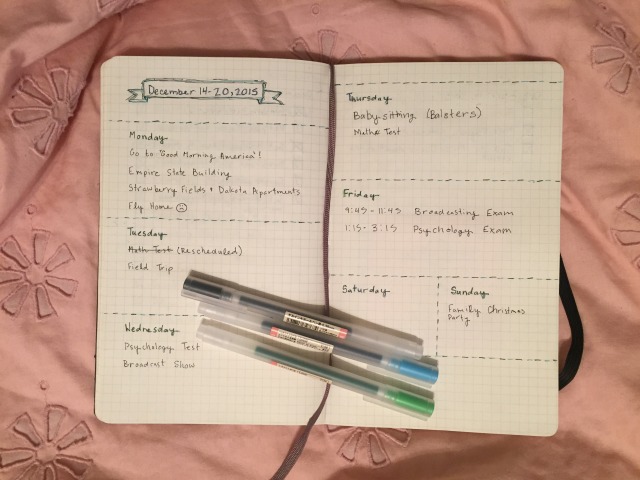 December 14-20, 2015
Monday
Go to "Good Morning America"!
Empire State Building
Strawberry Fields + Dakota Apartments
Fly Home
Tuesday
Math Test (Rescheduled)
Field Trip
Wednesday
Psychology Test
Broadcast Show
Thursday
Babysitting (Balsters)
Test
Friday
9:45 - 11:45 Broadcasting Exam
1:15 - 3:15 Psychology Exam
Saturday
Sunday
Family Christmas
Party